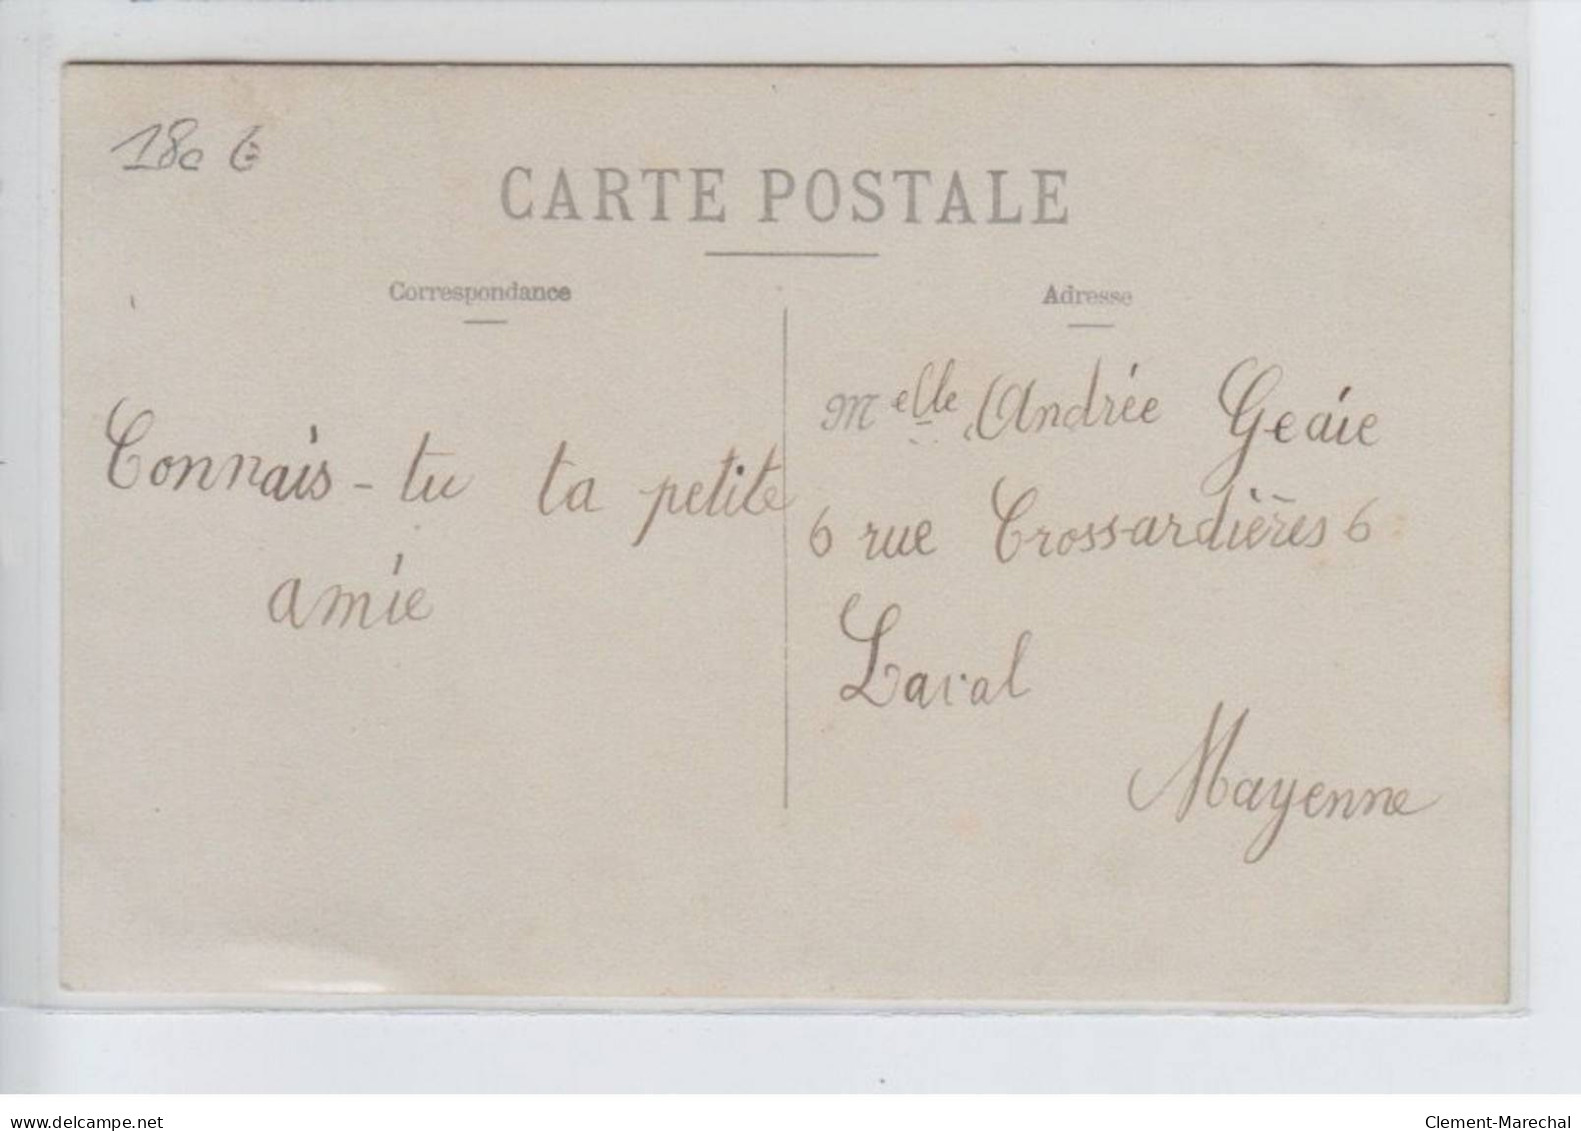 180 €
CARTE POSTALE
Correspondance
Adresse
Connais-tu ta petite
amie
Melle Andrée Geaie
6 rue Crossardières 6
Laval
Mayenne
www.delcampe.net
Clement-Marechal